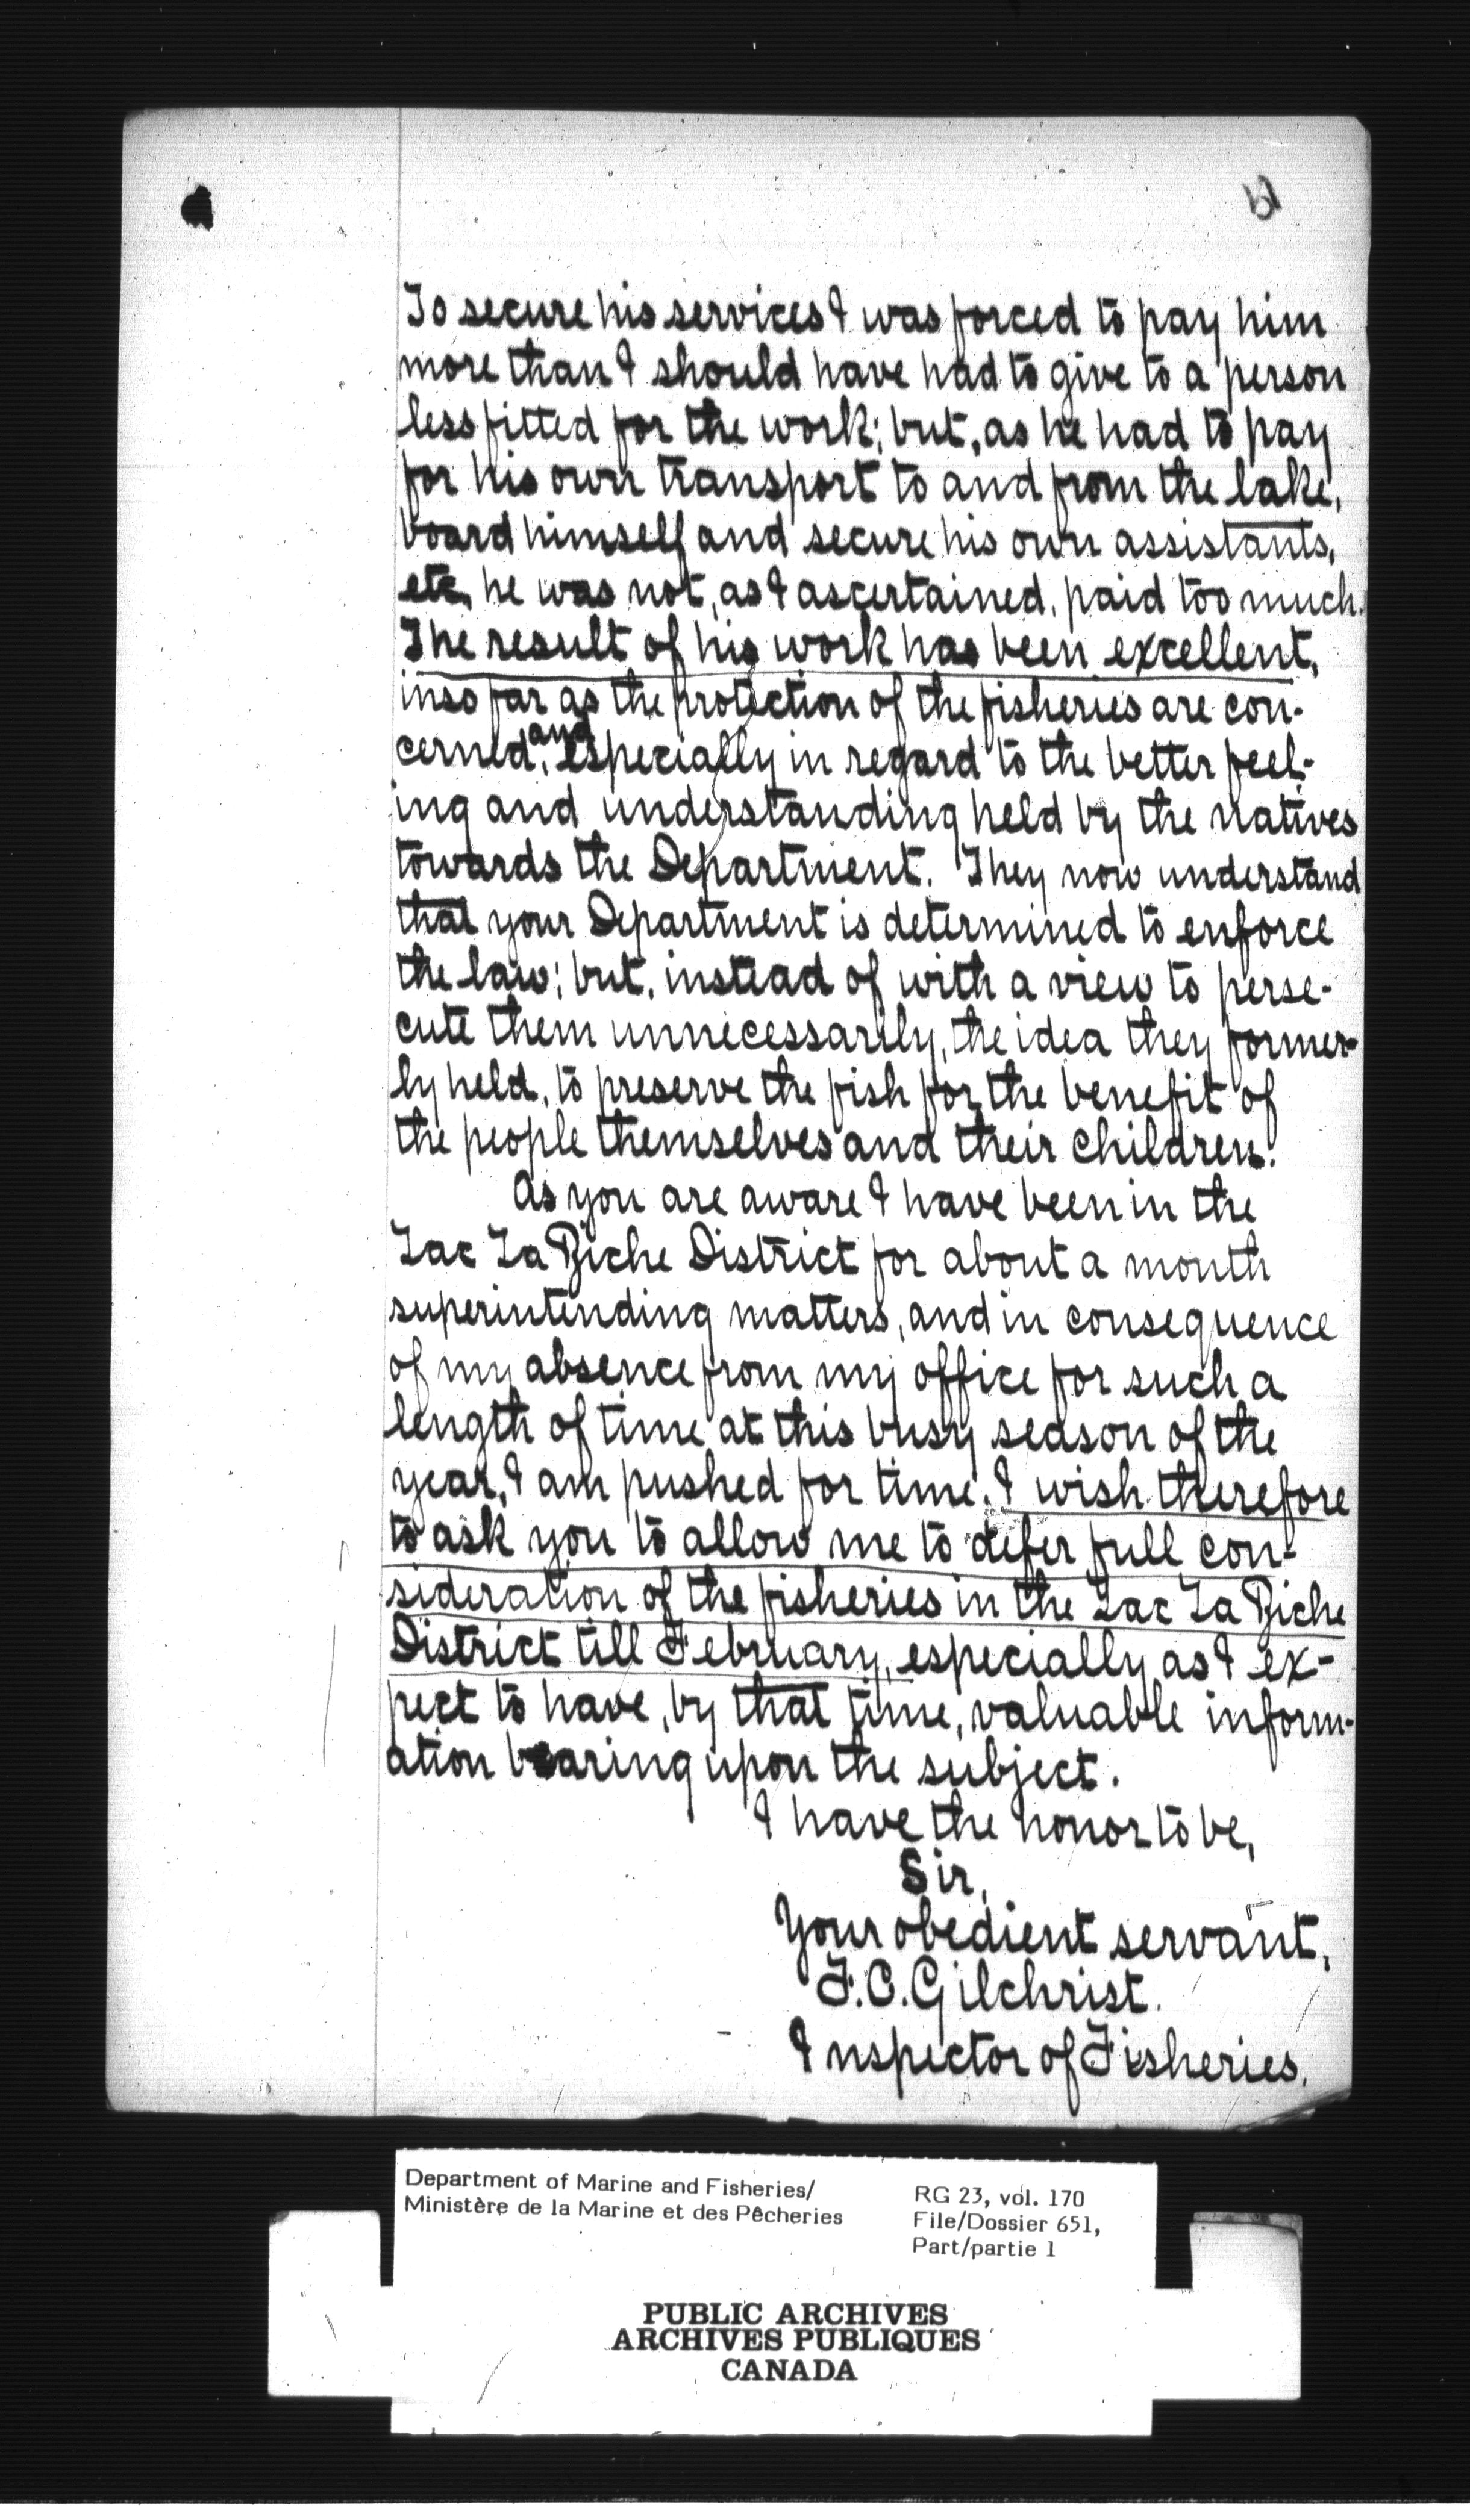 To secure his services I was forced to pay him
more than I should have had to give to a person
less fitted for the work; but, as he had to pay
for his own transport to and from the lake,
board himself and secure his own assistants,
etc, he was not, as I ascertained, paid too much.
The result of his work has been excellent,
inso far as the protection of the fisheries are con-
cerned, and especially in regard to the better feel-
ing and understanding held by the natives
towards the Department. They now understand
that your Department is determined to enforce
the law; but, instead of with a view to perse-
cute them unnecessarily, the idea they former-
ly held, to preserve the fish for the benefit of
the people themselves and their children.
As you are aware I have been in the
Lac La Biche District for about a month
superintending matters, and in consequence
of my absence from my office for such a
length of time at this busy season of the
year, I am pushed for time. I wish therefore
to ask you to allow me to defer full con-
sideration of the fisheries in the Lac La Biche
District till February, especially as I ex-
pect to have, by that time, valuable inform-
ation bearing upon the subject.
I have the honor to be,
Sir,
Your obedient servant,
F.C. Gilchrist.
Inspector of Fisheries.
Department of Marine and Fisheries/
Ministère de la Marine et des Pêcheries
RG 23, vol. 170
File/Dossier 651,
Part/partie 1
PUBLIC ARCHIVES
ARCHIVES PUBLIQUES
CANADA